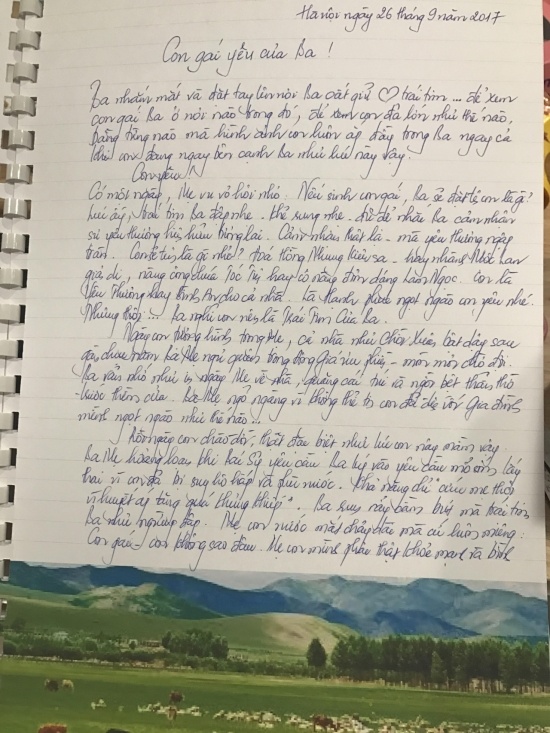 Hà nội ngày 26 tháng 9 năm 2017
Con gái yêu của Ba !
Ba nhắm mắt và đặt tay lên nơi Ba cất giữ ♡ trái tim ... để xem
con gái Ba ở nơi nào trong đó, để xem con đã lớn như thế nào,
bằng từng nào mà hình ảnh con luôn ắp đầy trong Ba ngay cả
khi con đang ngay bên cạnh Ba như lúc này vậy.
Con yêu
Có một ngày, Mẹ vu vơ hỏi nhỏ: Nếu sinh con gái, Ba sẽ đặt tên con là gì?
Lúc ấy, trái tim Ba đập nhẹ - khẽ rung nhẹ - đủ để nhắc Ba cảm nhận
sự yêu thương hiện hữu tương lai. Cảm nhận thật lạ - mà yêu thương ngập
tràn. Con sẽ tên là gì nhỉ? Hoá Hồng Nhung kiêu sa - hay nhành Mộc Lan
giản dị, nàng công chúa tóc mây hay cô nàng đỏm dáng Lan Ngọc. Con là
Yêu Thương hay Bình An cho cả nhà. Là Hạnh phúc ngọt ngào con yêu nhé.
Nhưng thôi, ... Ba nghĩ con nên là Trái Tim Của Ba.
Ngày con tượng hình trong Mẹ, cả nhà như Chồi Xuân bật dậy sau
gần chục năm Ba Mẹ ngủ quên trong Đông Giá - mòn mỏi chờ đợi.
Ba vẫn nhớ như in ngày Mẹ về nhà, quẳng cái túi và ngồi bệt thẫn thờ
trước thềm cửa. Ba Mẹ ngỡ ngàng vì không thể tin con đã đến với Gia đình
mình ngọt ngào như thế nào...
Rồi ngày con chào đời, thật đặc biệt như lúc con nảy mầm vậy.
Ba Mẹ hoảng loạn khi Bác Sỹ yêu cầu Ba ký vào yêu cầu mổ lấy
thai vì con đã bị suy hô hấp và phù nước. Khả năng chỉ "cứu mẹ thôi
vì huyết áp tăng quá khủng khiếp". Ba suy nảy bần bật mà trái tim
Ba như ngừng đập. Mẹ con nước mắt chảy dài mà cứ luôn miệng:
Con gái - con không sao đâu. Mẹ con mình phải thật khoẻ mạnh ra bình